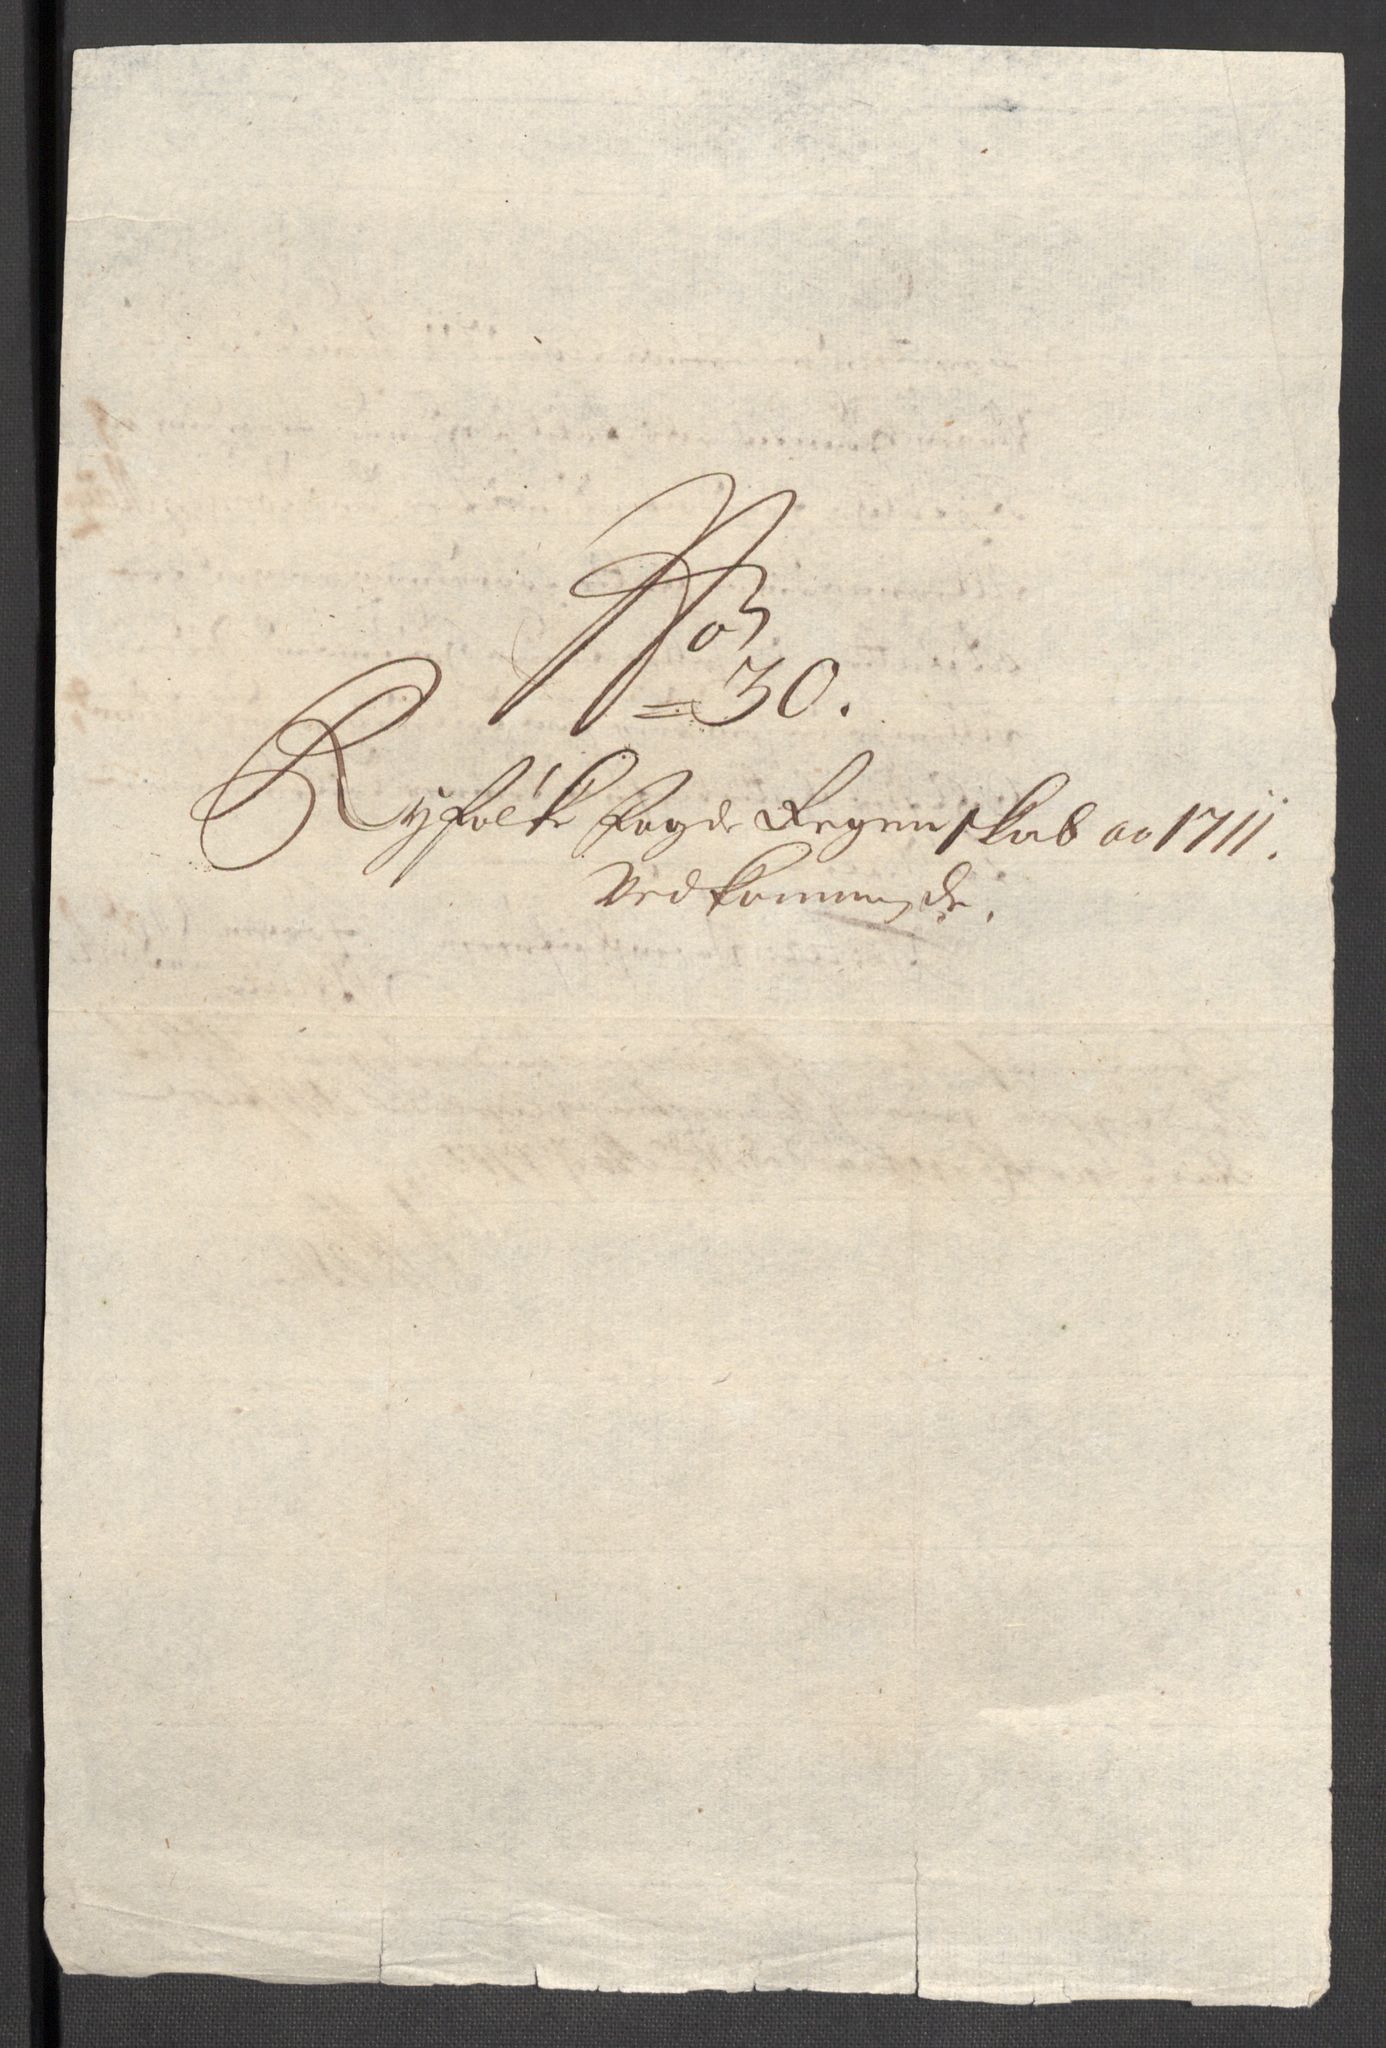 No
30.
Ryfolke fogde Regenskab ao 1711.
Vedkommende.